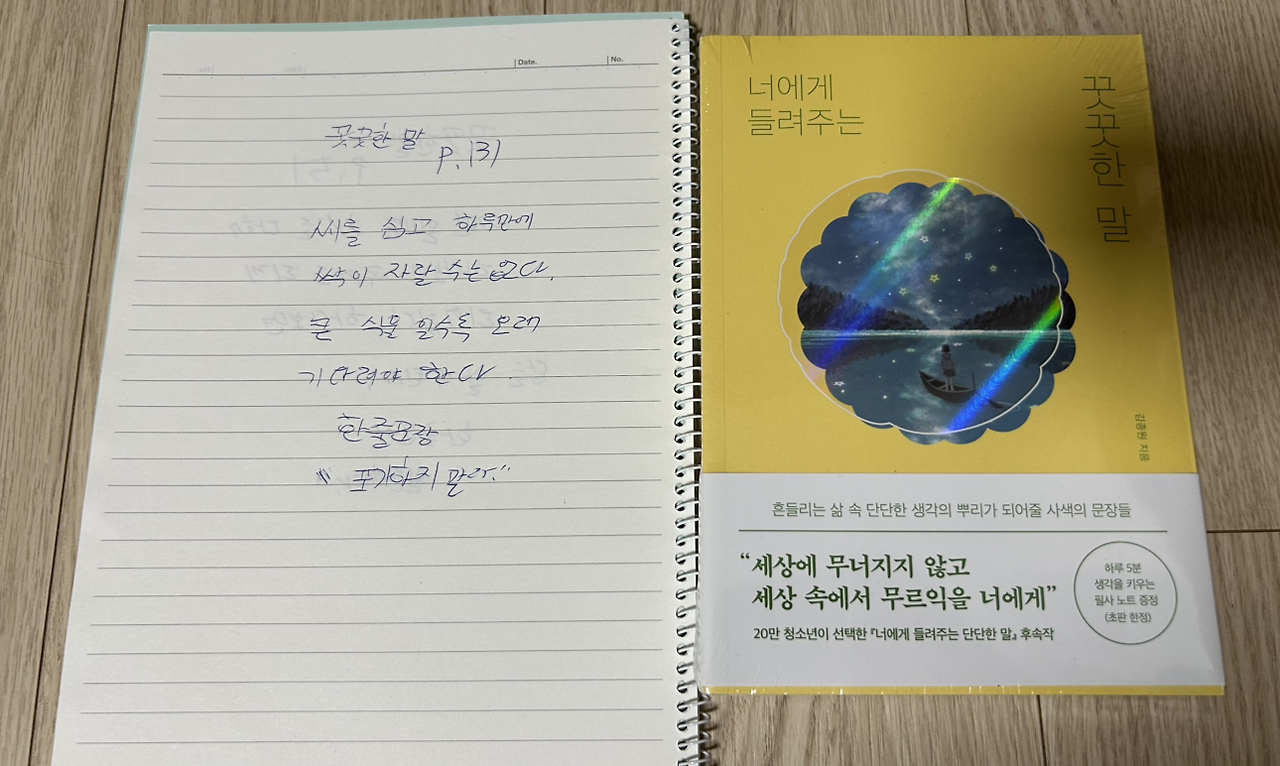 Date.
No.
꼿꼿한 말
P.131
씨를 심고 하루만에
싹이 자랄 수는 없다.
큰 식물 일수록 오래
기다려야 한다.
한줄문장
"포기하지 말라."
너에게
들려주는
꼿꼿한 말
김종원 지음
흔들리는 삶 속 단단한 생각의 뿌리가 되어줄 사색의 문장들
“세상에 무너지지 않고
세상 속에서 무르익을 너에게”
20만 청소년이 선택한 『너에게 들려주는 단단한 말』 후속작
하루 5분
생각을 키우는
필사 노트 증정
(초판 한정)